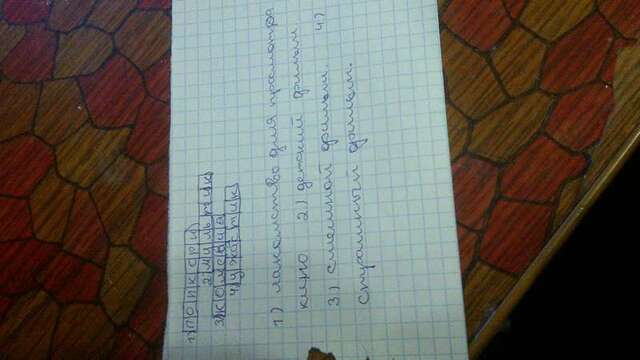 1) попкорн
2 мультик
3 комедия
4) ужастик
1) лакомство для просмотра
кино 2) детский фильм.
3) смешной фильм. 4)
страшный фильм.